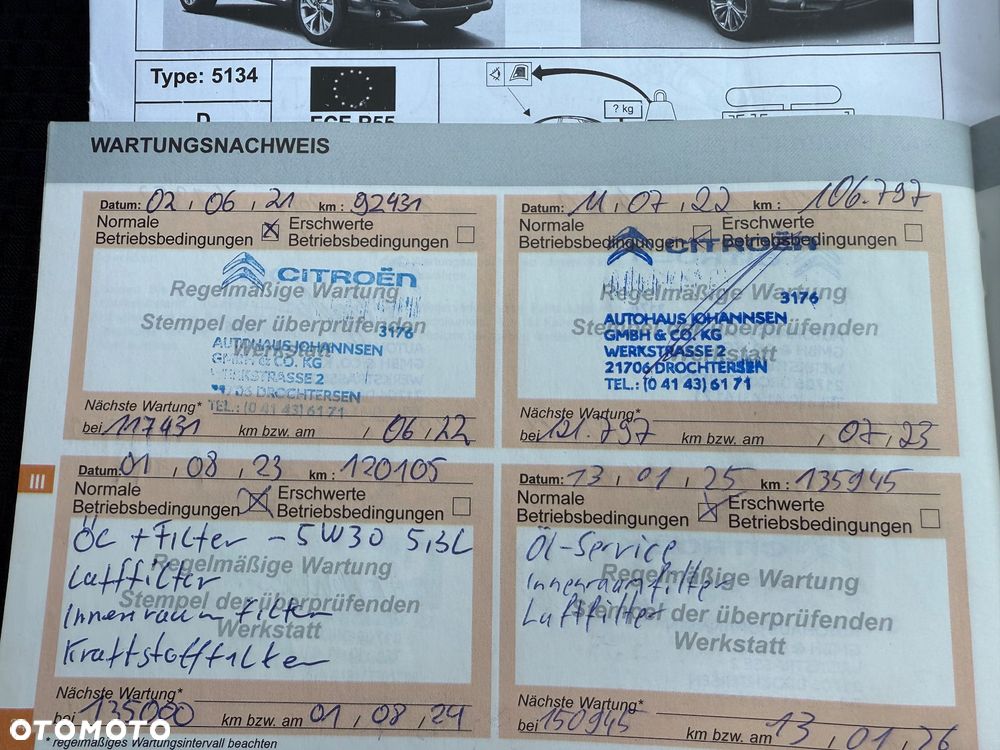 Type: 5134
D
ECE R55
? kg
WARTUNGSNACHWEIS
Datum: 02, 06, 21 km: 92431
Normale
Betriebsbedingungen
Erschwerte
Betriebsbedingungen
CITROËN
Regelmäßige Wartung
Stempel der überprüfenden
Werkstatt
3176
AUTOHAUS JOHANNSEN
GMBH & CO. KG
WERKSTRASSE 2
21706 DROCHTERSEN
TEL.: (0 41 43) 61 71
Nächste Wartung*
bei 117431 km bzw. am , 06, 22
Datum: 11, 07, 22 km: 106.797
Normale
Betriebsbedingungen
Erschwerte
Betriebsbedingungen
CITROËN
Regelmäßige Wartung
Stempel der überprüfenden
Werkstatt
3176
AUTOHAUS JOHANNSEN
GMBH & CO. KG
WERKSTRASSE 2
21706 DROCHTERSEN
TEL.: (0 41 43) 61 71
Nächste Wartung*
bei 121.797 km bzw. am , 07, 23
III
Datum: 01, 08, 23 km: 120105
Normale
Betriebsbedingungen
Erschwerte
Betriebsbedingungen
Öl + Filter - 5W30 5,3L
Luftfilter
Innenraum Filter
Kraftstofffilter
Regelmäßige Wartung
Stempel der überprüfenden
Werkstatt
Nächste Wartung*
bei 135000 km bzw. am 01, 08, 24
Datum: 13, 01, 25 km: 135945
Normale
Betriebsbedingungen
Erschwerte
Betriebsbedingungen
Öl-Service
Innenraumfilter
Luftfilter
Regelmäßige Wartung
Stempel der überprüfenden
Werkstatt
Nächste Wartung*
bei 150945 km bzw. am 13, 01, 26
* regelmäßiges Wartungsintervall beachten
OTOMOTO